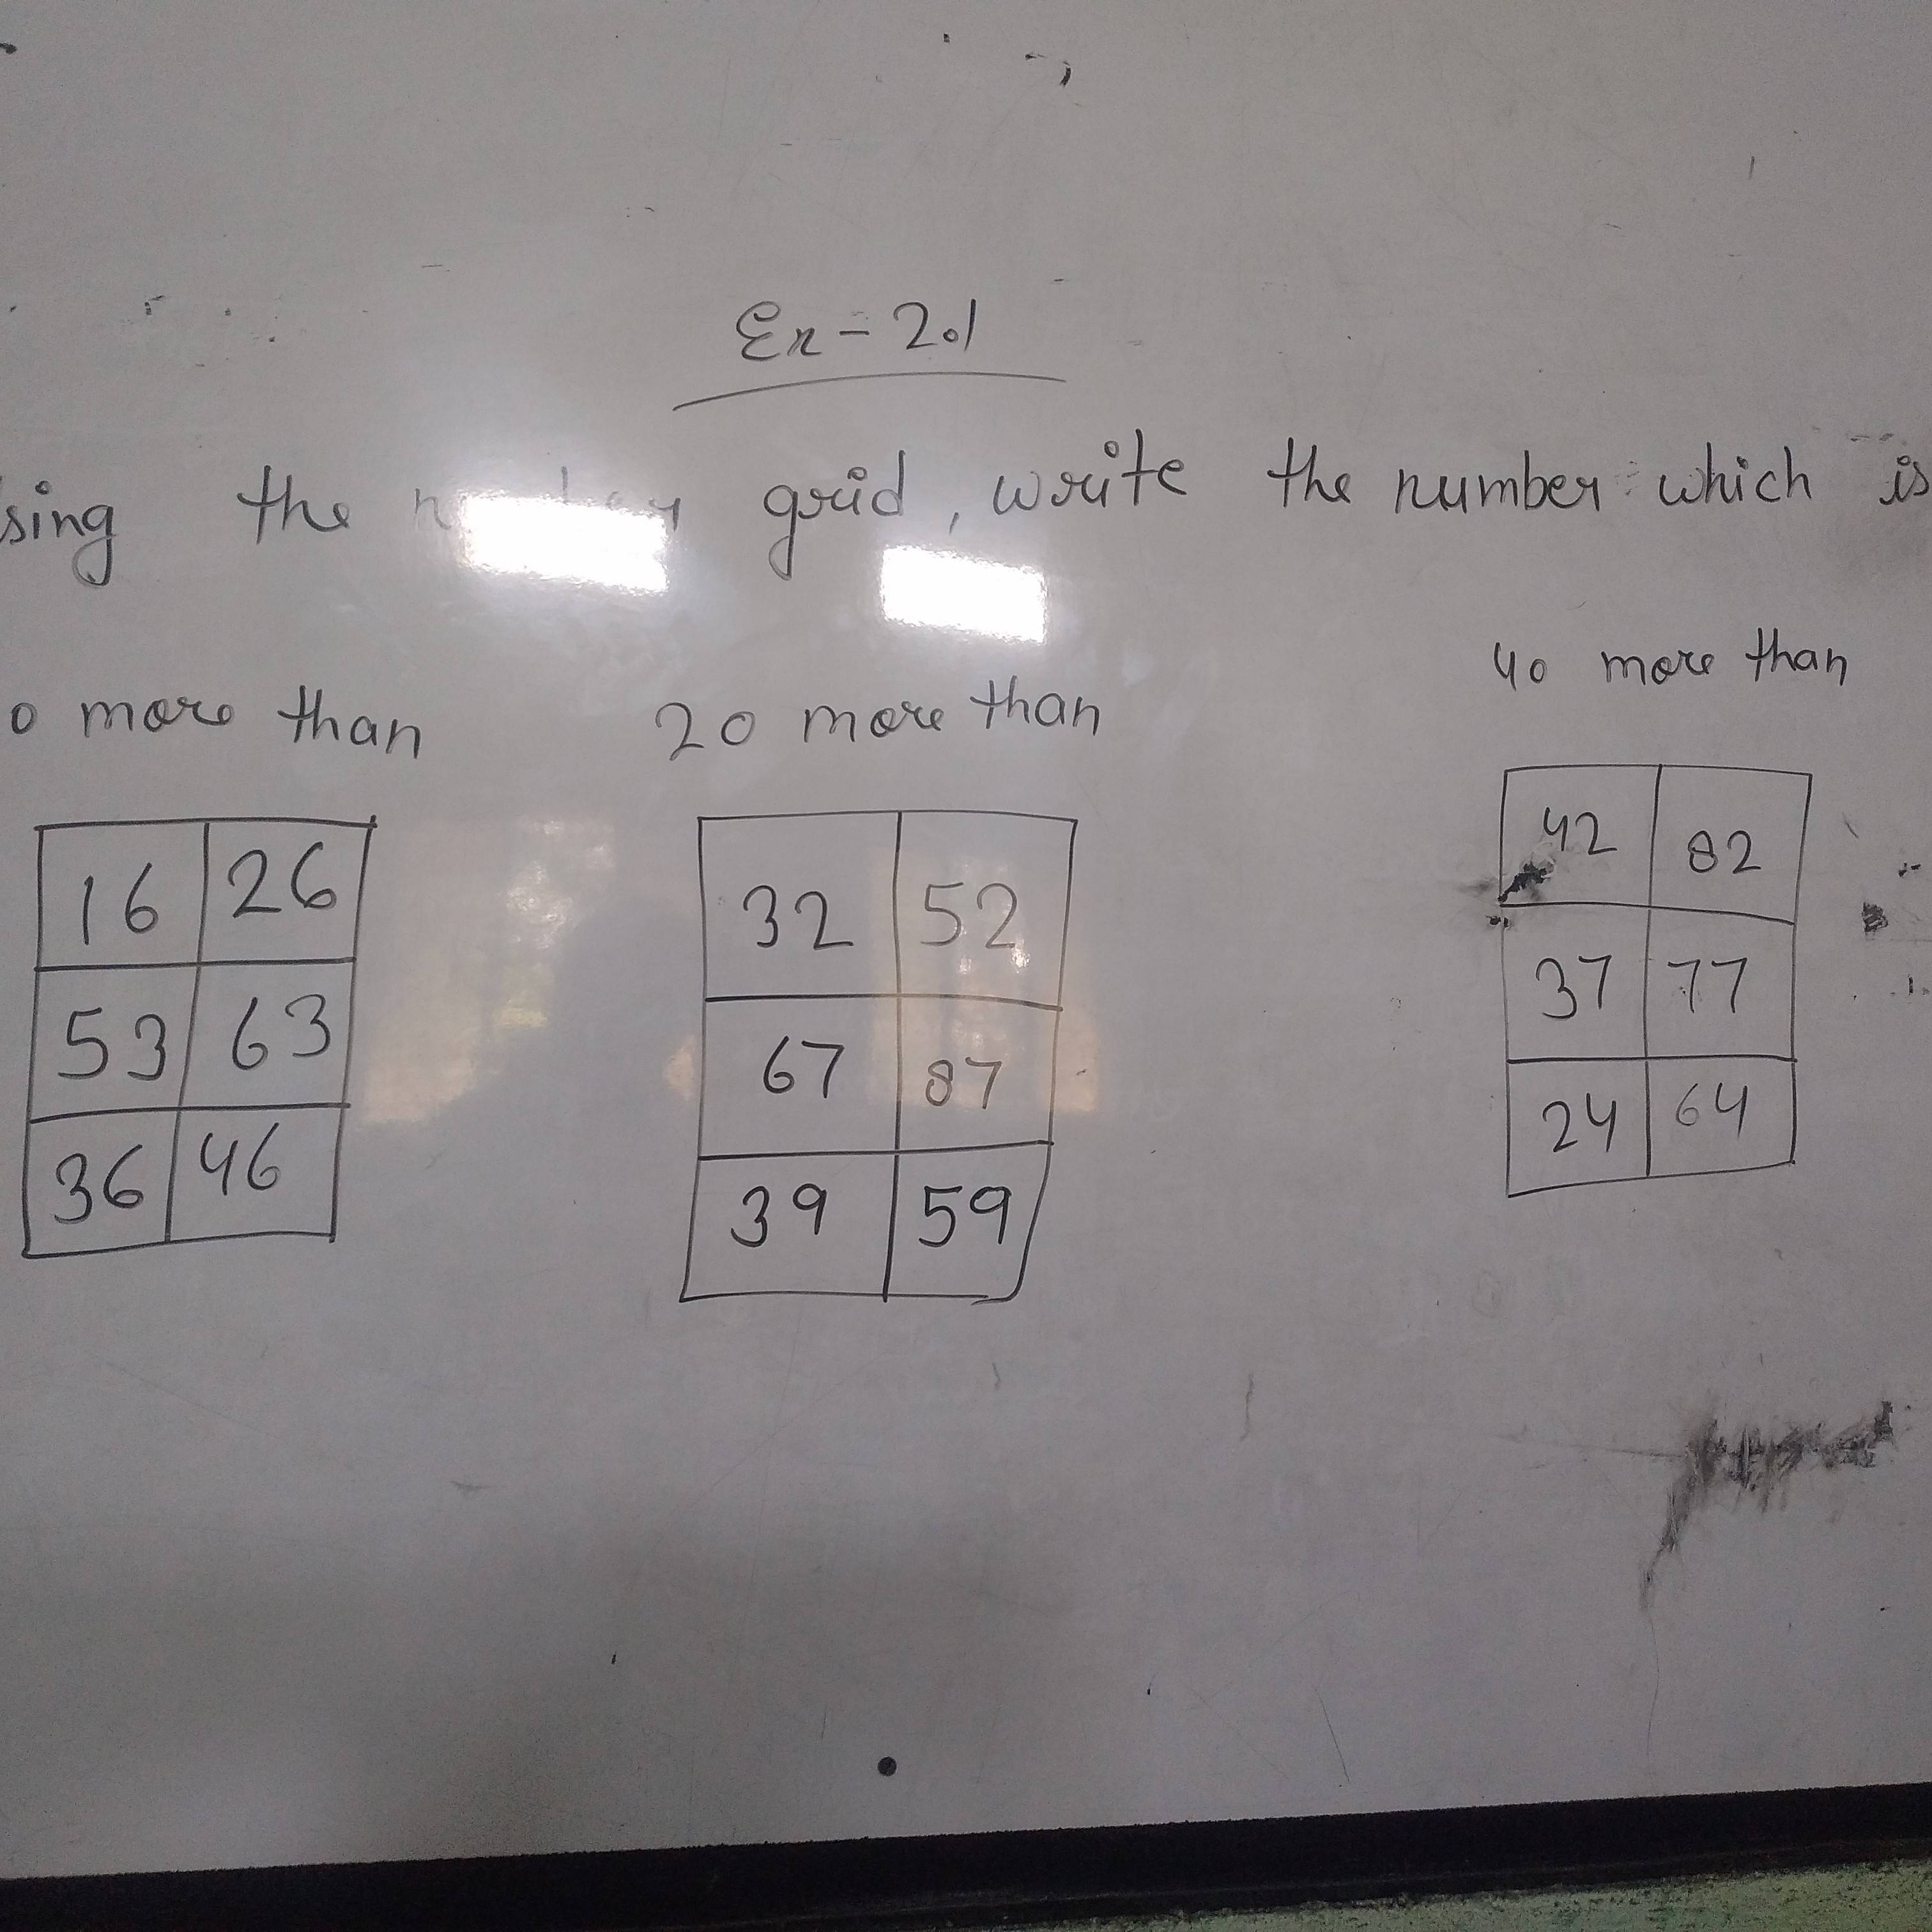 Ex - 2.1
sing the grid, write the number which is
0 more than
20 more than
40 more than
16 26
53 63
36 46
32 52
67 87
39 59
42 82
37 77
24 64